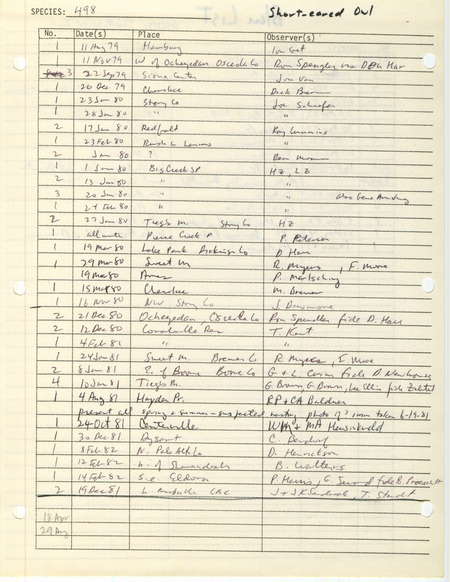 SPECIES: 498 Short-eared Owl
No. Date(s) Place Observer(s)
1 11 Aug 79 Hamburg
11 Nov 79 W of Ocheyedan Osceola Co Ron Spengler
3 22 Sep 79 Sioux Center
1 26 Dec 79 Cherokee Dick
1 23 Jan 80 Story Co Joe Schaufer
1 28 Jan 80 " "
2 17 Jan 80 Redfield Ray Cummins
1 23 Feb 80
2 Jan 80 ? Ben
1 1 Jan 80 Big Creek SP HZ, LZ
2 13 Jan 80 " "
3 20 Jan 80 " " also Gene Armstrong
1 24 Feb 80 " "
2 27 Jan 80 Tiegs M. Story Co HZ
1 all winter Pierce Creek P P. Petersen
1 19 Mar 80 Lake Park Dickinson Co D. Harr
1 29 Mar 80 Sweet M R. Myers, F. Moore
19 Mar 80 Ames P. Martsching
1 15 Mar 80 Cherokee M. Brewer
1 16 Nov 80 NW Story Co J. Dinsmore
2 21 Dec 80 Ocheyedan, Osceola Co Ron Spengler fide D. Harr
2 12 Dec 80 Coralville Res T. Kent
1 4 Feb 81 " "
1 24 Jan 81 Sweet M. Bremer Co R Myers, F Moore
2 8 Jan 81 E. of Boone Boone Co G + L. fide D. Newhouse
4 10 Jan 81 Tiegs M. G. Brown, G. Brown, fide Zaletel
1 4 Aug 81 Hayden Pr. RP + CA Baldner
present all spring + summer - suspected nesting photo of 1 taken 6-19-81
1 24 Oct 81 Centerville WM + MA Heusinkveld
1 30 Dec 81 Dysart C. Bendorf
1 8 Feb 82 N. Palo Alto Co D. Henrickson
1 12 Feb 82 n. of Shenandoah B. Walters
1 14 Feb 82 S.e. Eldora P. Harris, G. fide B. Proescholdt
2 19 Dec 81 L. CBC J + JK Sandrock, T. Staudt
18 Apr
29 Aug